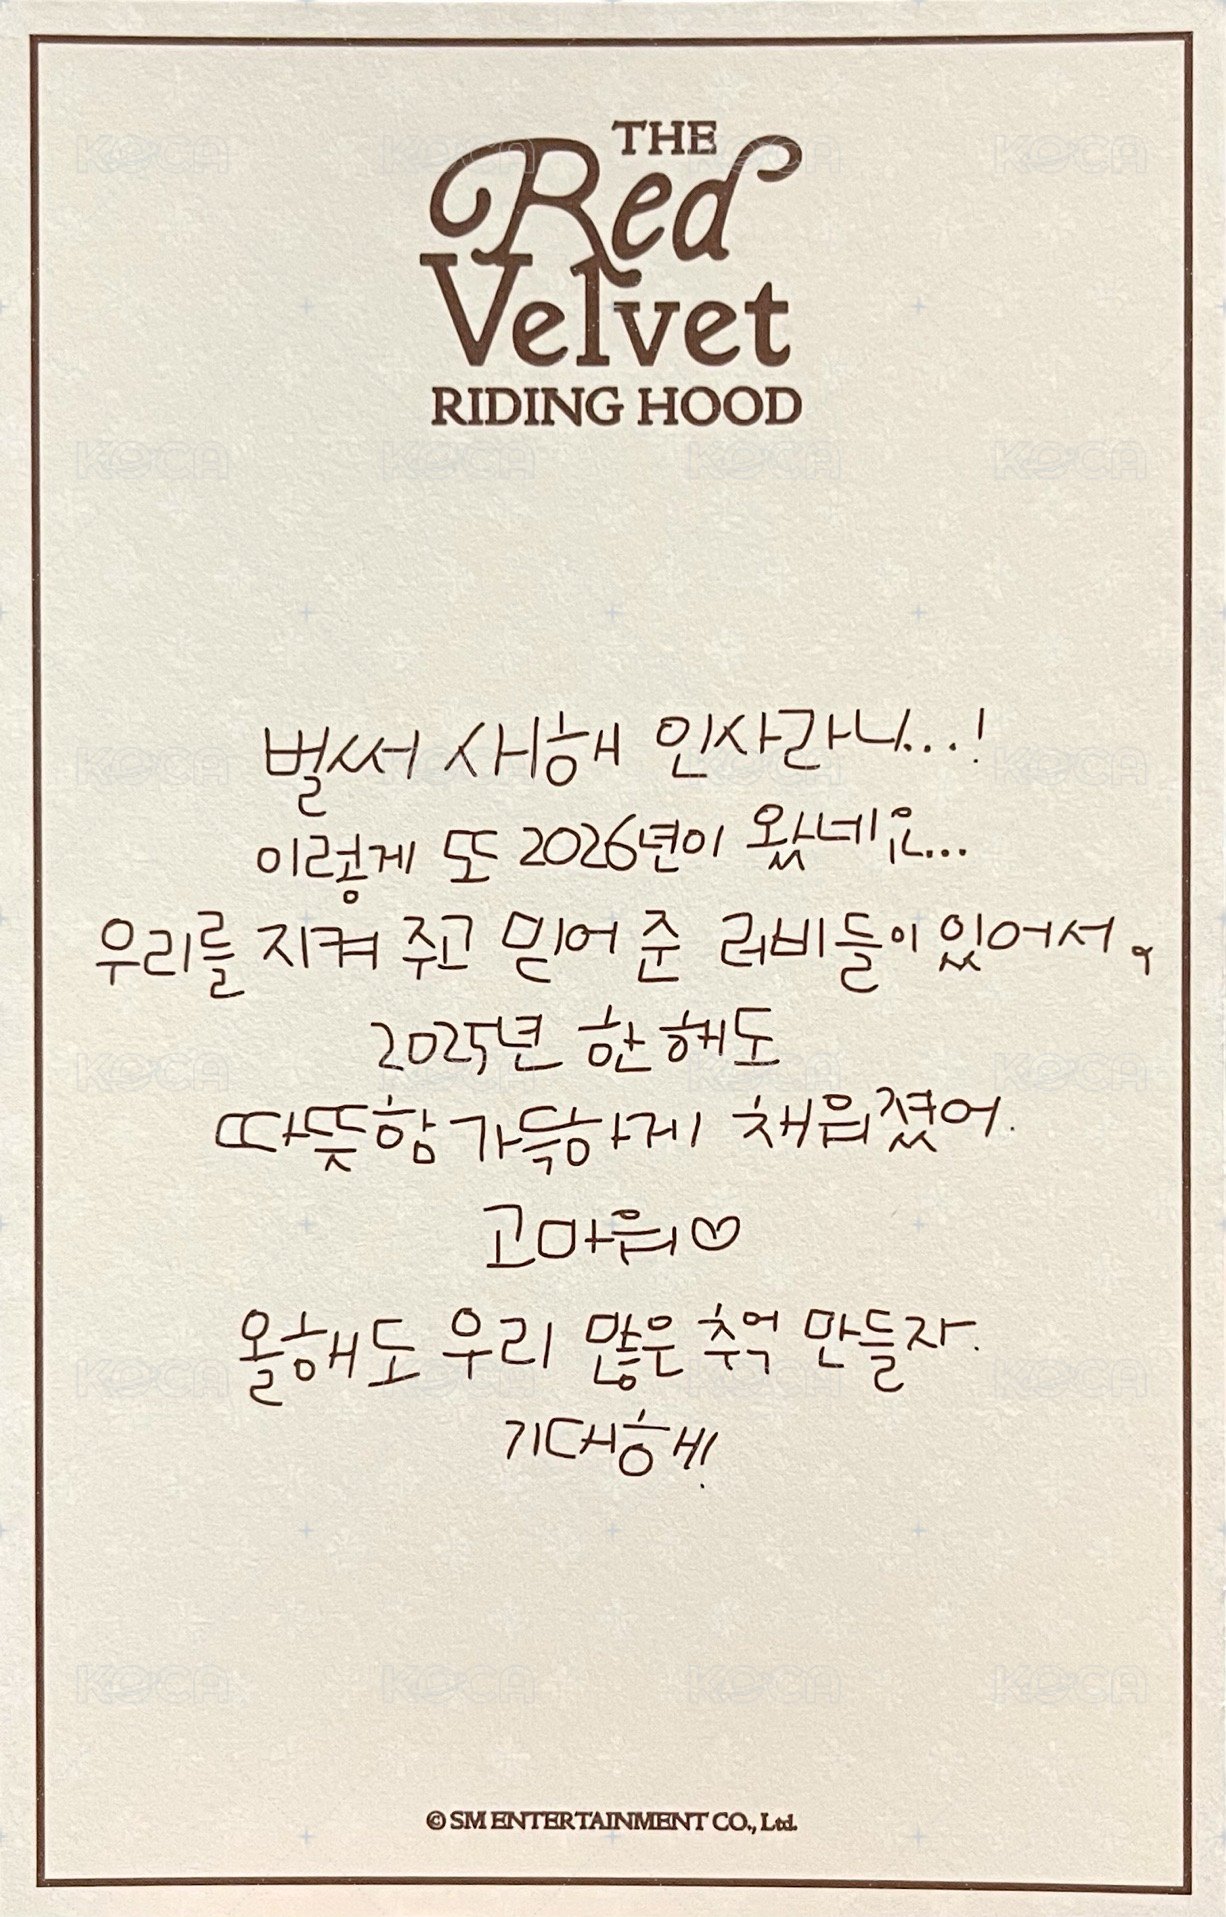 THE
Red
Velvet
RIDING HOOD
벌써 새해 인사라니...!
이렇게 또 2026년이 왔네요...
우리를 지켜 주고 믿어 준 러비들이 있어서,
2025년 한 해도
따뜻함 가득하게 채워졌어.
고마워♡
올해도 우리 많은 추억 만들자.
기대해!
© SM ENTERTAINMENT CO., Ltd.